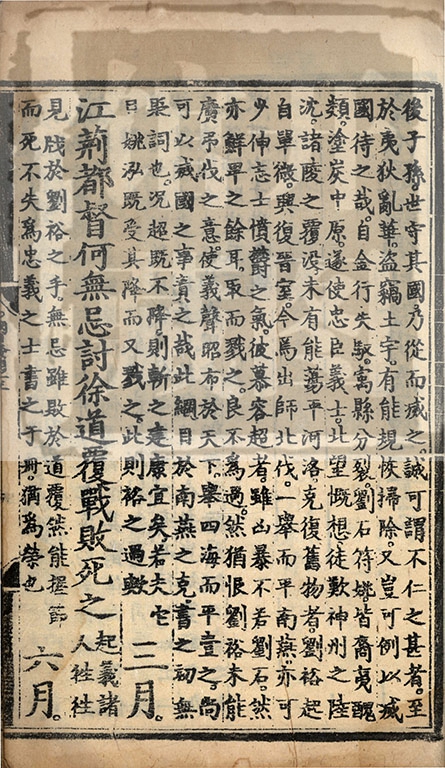 後子孫。世守其國。乃從而滅之。誠可謂不仁之甚者。至
於夷狄亂華。盜竊土宇。有能規恢掃除。又豈可例以滅
國待之哉。自金行失馭。寓縣分裂。劉石符姚。皆裔夷醜
類。塗炭中原。遂使忠臣義士。北望慨想。徒歎神州之陸
沈。諸陵之覆沒。未有能蕩平河洛。克復舊物者。劉裕起
自單微。興復晉室。今焉出師北伐。一舉而平南燕。亦可
少伸忠士憤欝之氣。彼慕容超者。雖凶暴不若劉石。然
亦鮮卑之餘耳。取而戮之。良不為過。然猶恨劉裕未能
廣弔伐之意。使義聲昭布於天下。舉四海而平壹之。尚
可以滅國之事責之哉。此綱目於南燕之克。書之初無
貶詞也。况超既不降。則斬之建康宜矣。若夫它
日姚泓既受其降。而又戮之。此則裕之過歟 三月。
江荊都督何無忌討徐道覆戰敗死之 起義諸人。徃徃
見戕於劉裕之手。無忌雖敗於道覆。然能握節
而死。不失為忠義之士。書之于冊。猶為榮也 六月。